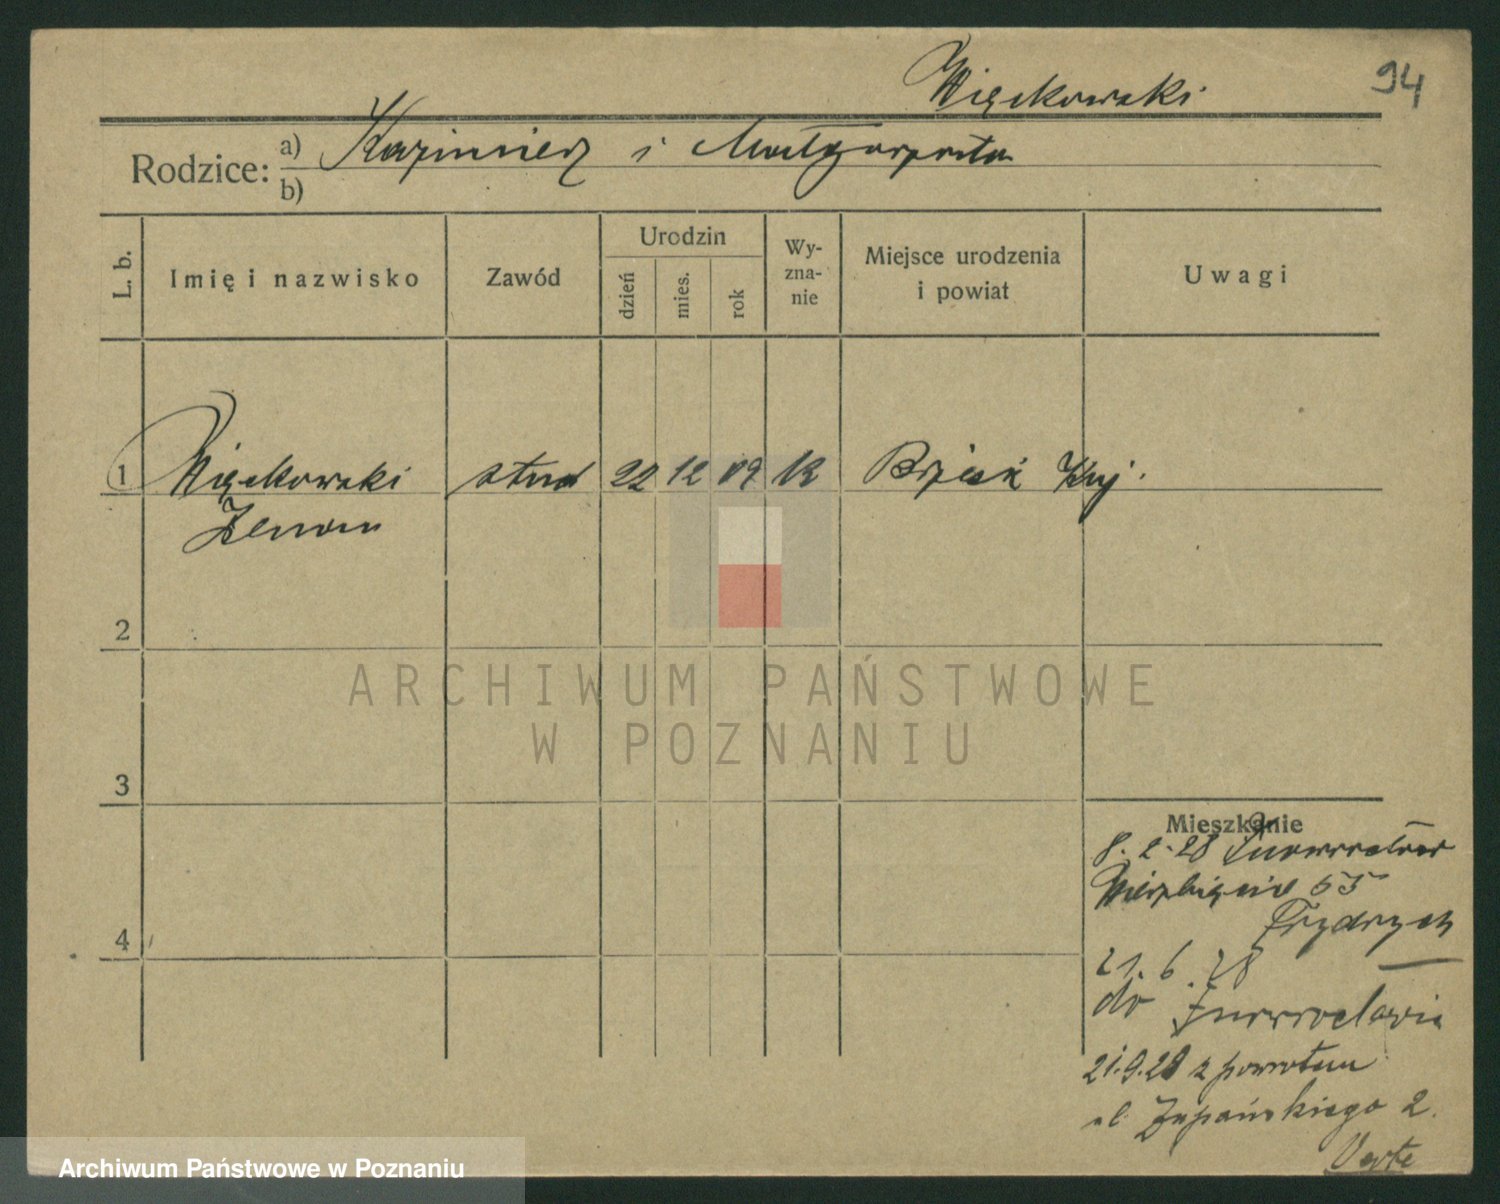 Więckowski 94
Rodzice: a) Kazimierz i Małgorzata
b)
L. b. Imię i nazwisko Zawód Urodzin dzień mies. rok Wy-zna-nie Miejsce urodzenia i powiat Uwagi
1 Więckowski stud 22 12 09 k Brześć Kuj.
Zenon
2
ARCHIWUM PAŃSTWOWE
W POZNANIU
3
Mieszkanie
8. 2. 28 Inowrocław
Wierzbięcice 55
Frydrych
4
21. 6. 28
do Inowrocławia
21.9.28 z powrotem
ul. Żupańskiego 2.
Verte
Archiwum Państwowe w Poznaniu